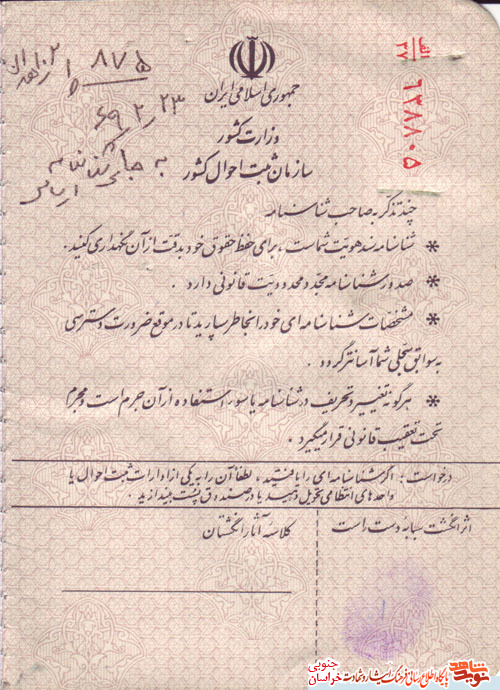 الف
۳۷
۶۳۸۸۰۵
۸۷۵
۶۹/۲/۲۳
به جای شناسنامه
جمهوری اسلامی ایران
وزارت کشور
سازمان ثبت احوال کشور
چند تذکر به صاحب شناسنامه
* شناسنامه سند هویت شماست ، برای حفظ حقوق خود بدقت از آن نگهداری کنید.
* صدور شناسنامه مجدد محدودیت قانونی دارد .
* مشخصات شناسنامه ای خود را بخاطر بسپارید تا در موقع ضرورت دسترسی
به سوابق سجلی شما آسانتر گردد .
* هرگونه تغییر و تحریف در شناسنامه یا سوء استفاده از آن جرم است و مجرم
تحت تعقیب قانونی قرار میگیرد .
درخواست : اگر شناسنامه ای را یافتید ، لطفاً آن را به یکی از ادارات ثبت احوال یا
واحدهای انتظامی تحویل دهید یا در صندوق پست بیندازید .
اثر انگشت سبابه دست راست
کلاسه آثار انگشتان
نوید شاهد
پایگاه اطلاع رسانی فرهنگ ایثار و شهادت
خراسان جنوبی